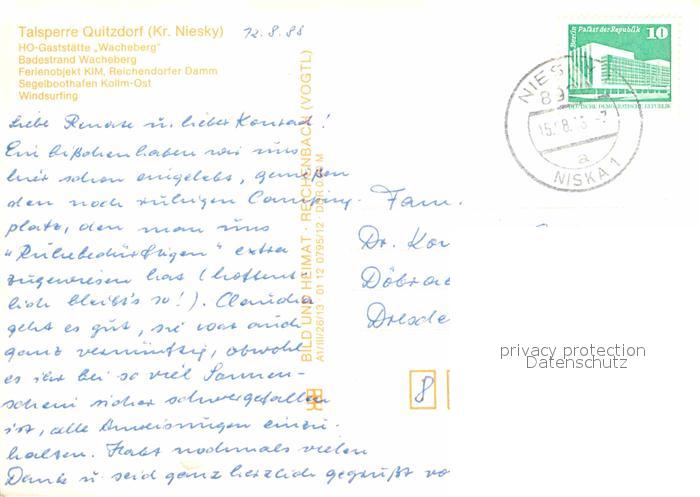 Talsperre Quitzdorf (Kr. Niesky)
HO-Gaststätte „Wacheberg"
Badestrand Wacheberg
Ferienobjekt KIM, Reichendorfer Damm
Segelboothafen Kollm-Ost
Windsurfing
12.8.86
Liebe Renate u. lieber Konrad!
Ein bißchen haben wir uns
hier schon eingelebt, genießen
den noch ruhigen Camping-
platz, den man uns
"Ruhebedürftigen" extra
zugewiesen hat (hoffent
lich bleibt's so!). Claudia
geht es gut, sie war auch
ganz vernünftig, obwohl
es ihr bei so viel Sonnen-
schein sicher schwergefallen
ist, alle Anweisungen einzu-
halten. Habt nochmals vielen
Dank u. seid ganz herzlich gegrüßt vo
BILD UND HEIMAT · REICHENBACH (VOGTL)
A1/III/26/13 01 12 0795/12
Berlin Palast der Republik
10
DEUTSCHE DEMOKRATISCHE REPUBLIK
NIES
89
15.8. -7
a
NISKA 1
Fam.
Dr. Kon
Döbra
Dresde
8
privacy protection
Datenschutz